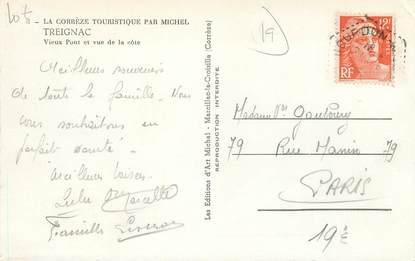 LA CORRÈZE TOURISTIQUE PAR MICHEL
TREIGNAC
Vieux Pont et vue de la côte
Meilleurs souvenirs
de toute la famille. Nous
vous souhaitons en
parfait santé.
Meilleurs baisers
Lulu Marcelle
Famille
Les Editions d'Art Michel - Marcillac-la-Croisille (Corrèze)
REPRODUCTION INTERDITE
19
19F
RF
Madame Vve
79 Rue Manin 79
PARIS
19e